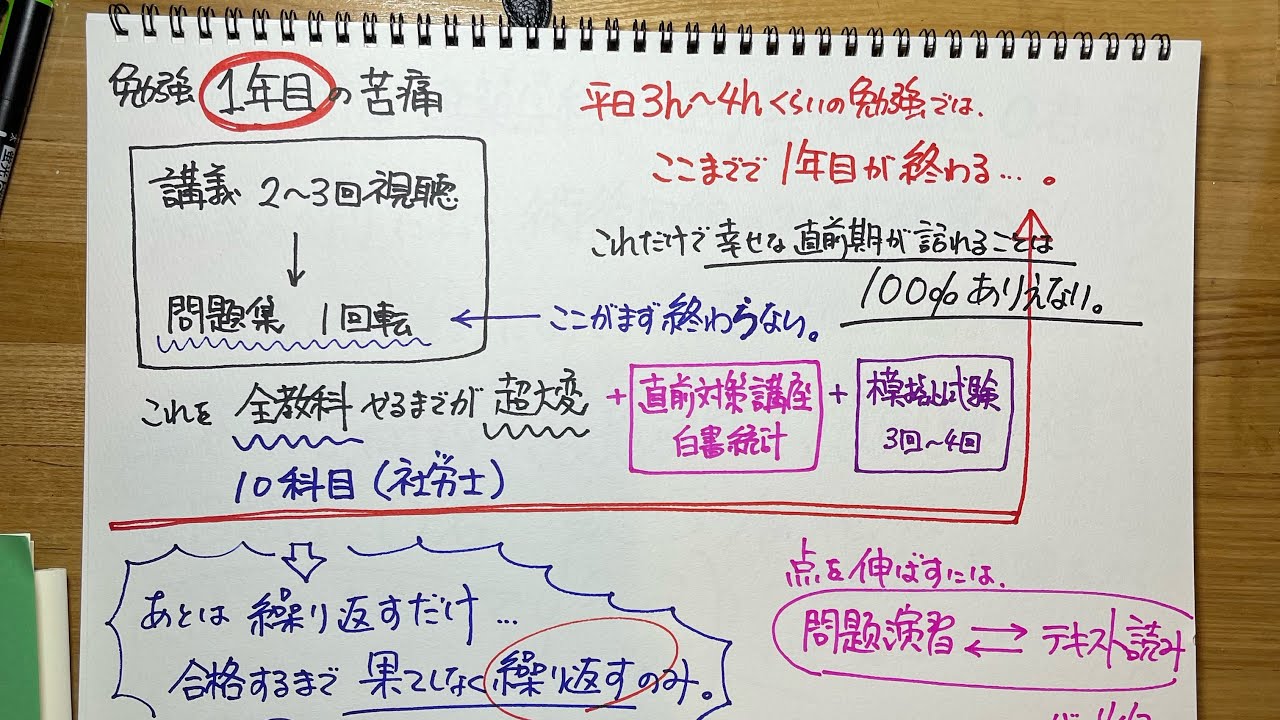 勉強1年目の苦痛
平日3h〜4hくらいの勉強では、
ここまでで1年目が終わる…。
講義 2〜3回視聴
↓
問題集 1回転
これだけで幸せな直前期が訪れることは
100%ありえない。
← ここがまず終わらない。
これを 全教科 やるまでが 超大変
10科目(社労士)
+ 直前対策講座
白書統計
+ 模擬試験
3回〜4回
あとは 繰り返すだけ…
合格するまで 果てしなく繰り返すのみ。
点を伸ばすには、
問題演習 ⇄ テキスト読み